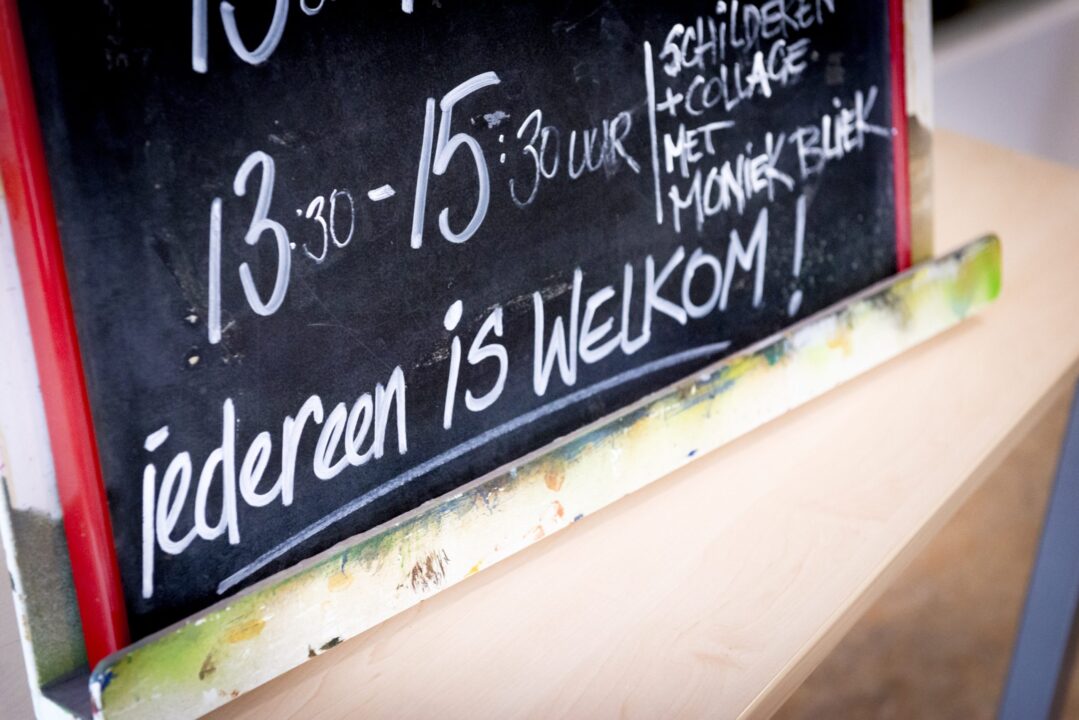 13:30 - 15:30 UUR
SCHILDEREN
+ COLLAGE
MET
MONIEK BLIEK
iedereen is WELKOM!